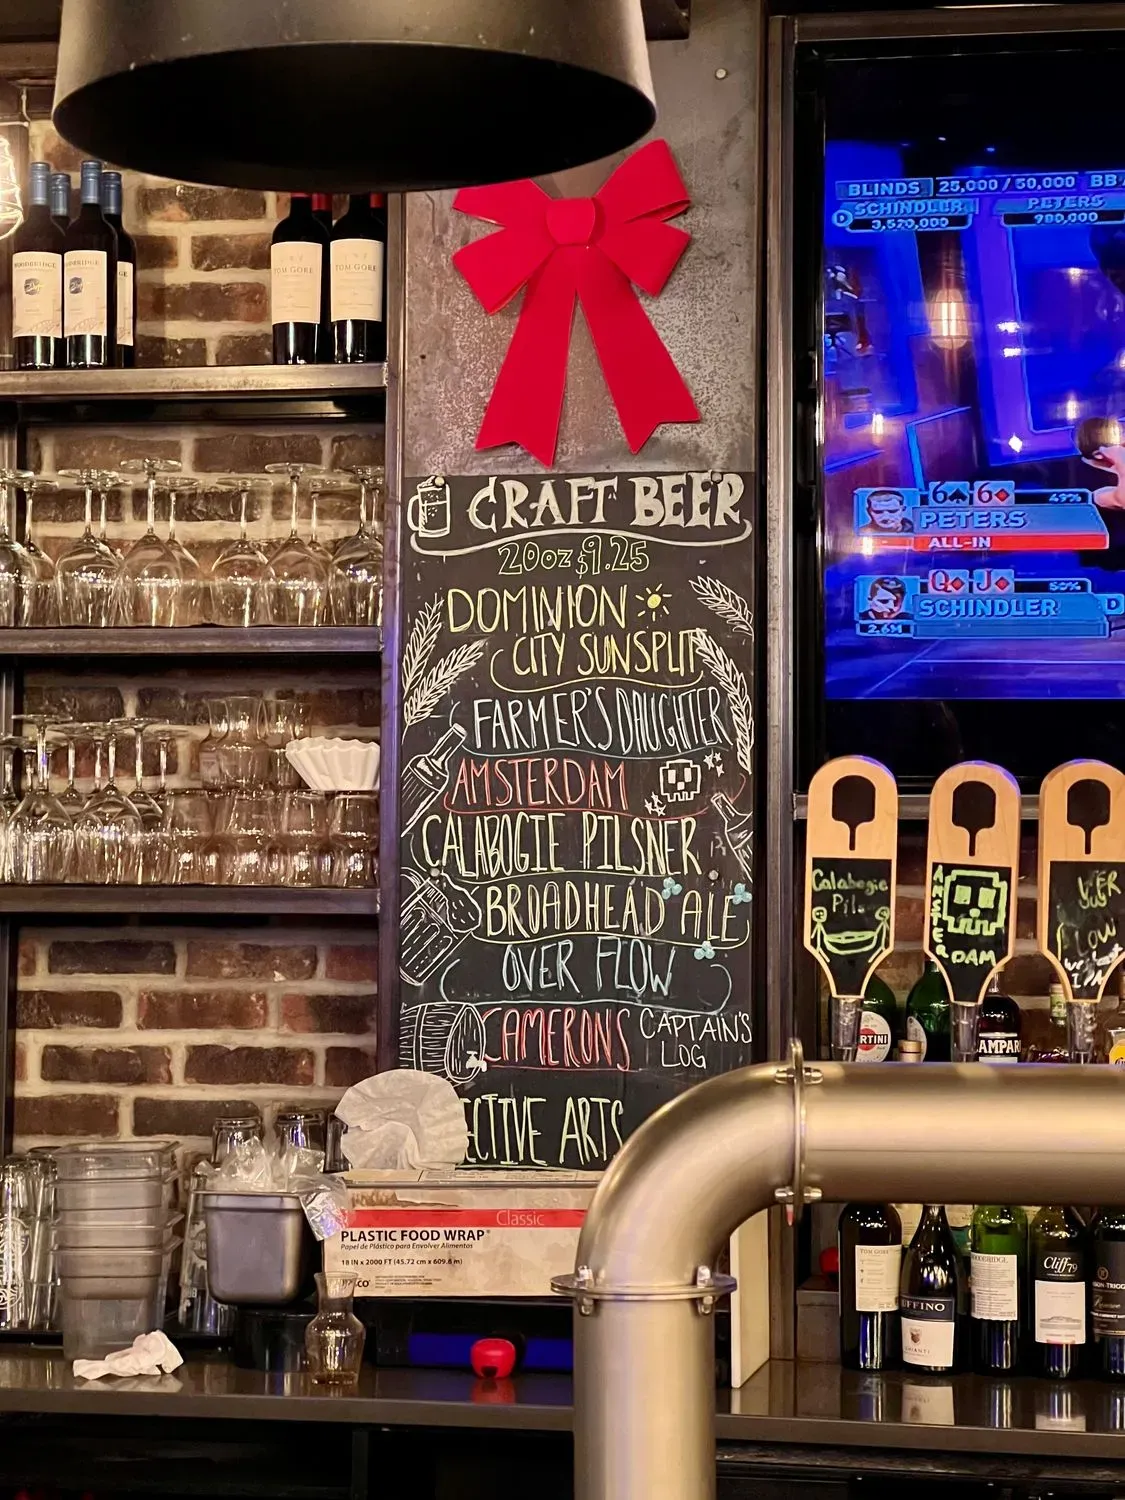 BLINDS 25,000 / 50,000 BB
D SCHINDLER PETERS
3,520,000 980,000
WOODBRIDGE
TOM GORE
TOM GORE
CRAFT BEER
20oz $9.25
DOMINION
CITY SUNSPLIT
FARMER'S DAUGHTER
AMSTERDAM
CALABOGIE PILSNER
BROADHEAD ALE
OVER FLOW
CAMERONS CAPTAIN'S
LOG
ECTIVE ARTS
6♠ 6♦ 49%
PETERS
ALL-IN
Q♦ J♦ 50%
SCHINDLER D
2.6M
Calabogie
Pils
AMSTERDAM
LOW
Classic
PLASTIC FOOD WRAP
Papel de Plástico para Envolver Alimentos
18 IN x 2000 FT (45.72 cm x 609.6 m)
TOM GORE
UFFINO
CHIANTI
Cliff 79